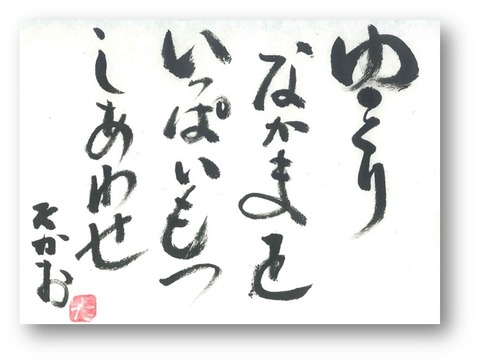 ゆっくり
なかまを
いっぱいもつ
しあわせ
たかお